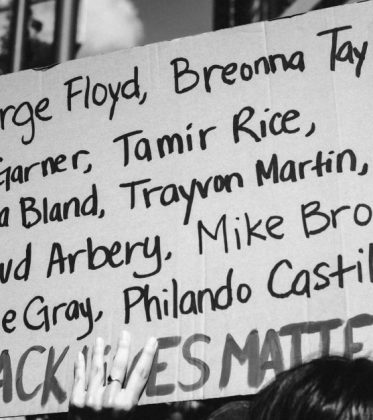 rge Floyd, Breonna Tay
Garner, Tamir Rice,
a Bland, Trayvon Martin,
ud Arbery, Mike Bro
e Gray, Philando Castil
ACK LIVES MATTE